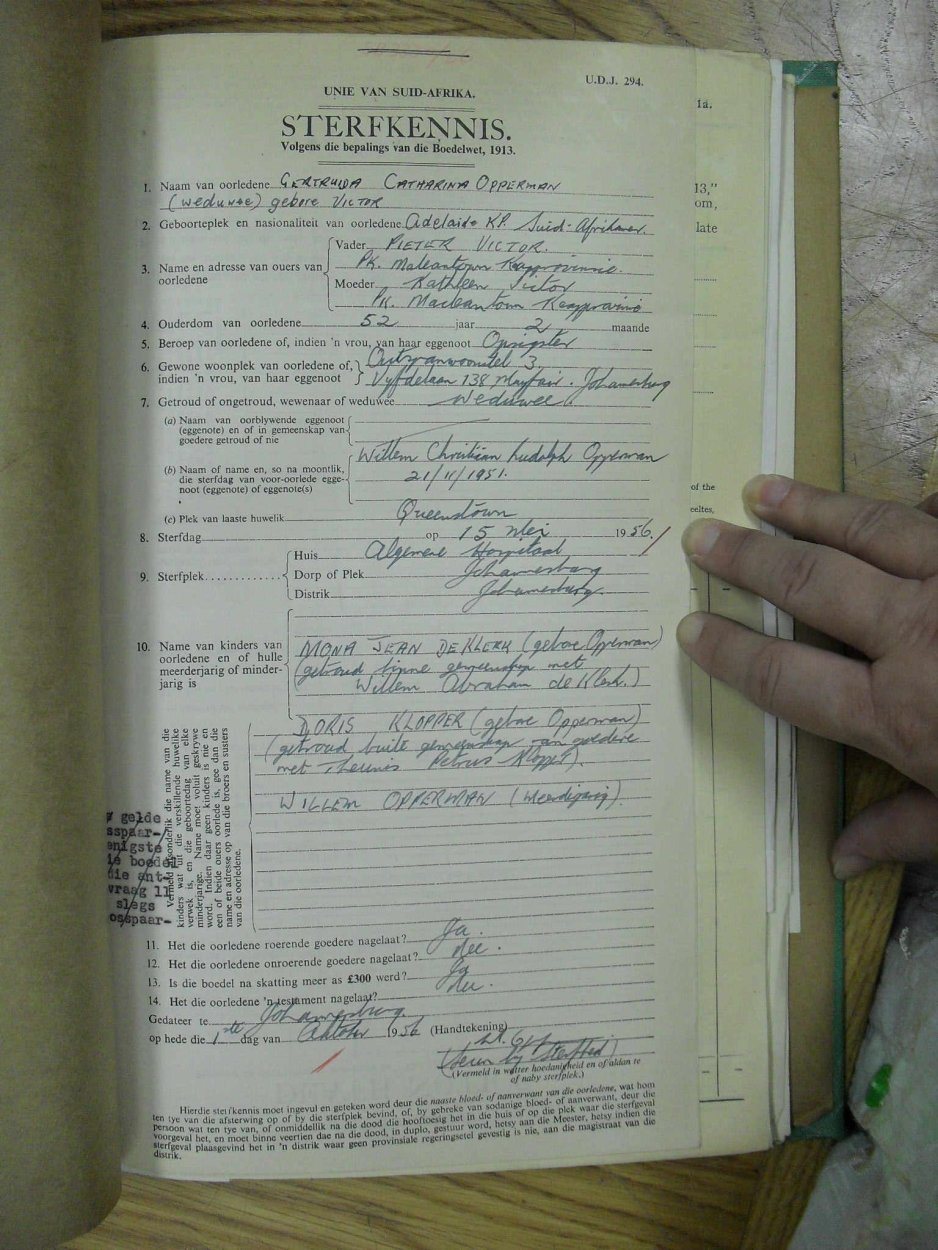 U.D.J. 294.
UNIE VAN SUID-AFRIKA.
STERFKENNIS.
Volgens die bepalings van die Boedelwet, 1913.
1. Naam van oorledene GERTRUIDA CATHARINA OPPERMAN
(weduwee) gebore VICTOR
2. Geboorteplek en nasionaliteit van oorledene Adelaide KP. Suid-Afrikaner.
3. Name en adresse van ouers van oorledene
Vader PIETER VICTOR.
PK. Macleantown Kaapprovinsie.
Moeder Kathleen Victor
PK. Macleantown
4. Ouderdom van oorledene 52 jaar 2 maande
5. Beroep van oorledene of, indien 'n vrou, van haar eggenoot Opsigster
6. Gewone woonplek van oorledene of,
indien 'n vrou, van haar eggenoot
3
Vyfdelaan 138 Mayfair. Johannesburg
7. Getroud of ongetroud, wewenaar of weduwee Weduwee.
(a) Naam van oorblywende eggenoot
(eggenote) en of in gemeenskap van
goedere getroud of nie
(b) Naam of name en, so na moontlik,
die sterfdag van voor-oorlede egge-
noot (eggenote) of eggenote(s)
Willem Christian Ludolph Opperman
21/11/1951.
(c) Plek van laaste huwelik Queenstown
8. Sterfdag op 15 Mei 1956.
9. Sterfplek
Huis Algemene Hospitaal,
Dorp of Plek Johannesburg
Distrik Johannesburg.
10. Name van kinders van
oorledene en of hulle
meerderjarig of minder-
jarig is
MONA JEAN DE KLERK (gebore Opperman)
(getroud binne gemeenskap met
Willem Abraham de Klerk.)
DORIS KLOPPER (gebore Opperman)
(getroud buite gemeenskap van goedere
met Theunis Petrus Klopper).
WILLEM OPPERMAN (Meerderjarig).
Vermeld afsonderlik die name van die
kinders wat uit die verskillende huwelike
verwek is, en die geboortedag van elke
minderjarige. Name moet voluit geskrywe
word. Indien daar geen kinders is nie en
een of beide ouers oorlede is, gee dan die
name en adresse op van die broers en susters
van die oorledene.
gelde
sspaar-
enigste
ie boedel
die ant-
vraag 11
slegs
osspaar-
11. Het die oorledene roerende goedere nagelaat? Ja.
12. Het die oorledene onroerende goedere nagelaat? Nee.
13. Is die boedel na skatting meer as £300 werd? Ja
14. Het die oorledene 'n testament nagelaat? Nee.
Gedateer te Johannesburg
op hede die 1ste dag van Oktober 1956 (Handtekening)
(Seun by Sterfbed)
(Vermeld in watter hoedanigheid en of aldan te
of naby sterfplek.)
Hierdie sterfkennis moet ingevul en geteken word deur die naaste bloed- of aanverwant van die oorledene, wat hom
ten tye van die afsterwing op of by die sterfplek bevind, of, by gebreke van sodanige bloed- of aanverwant, deur die
persoon wat ten tye van, of onmiddellik na die dood die hooftoesig het in die huis of op die plek waar die sterfgeval
voorgeval het, en moet binne veertien dae na die dood, in duplo, gestuur word, hetsy aan die Meester, hetsy indien die
sterfgeval plaasgevind het in 'n distrik waar geen provinsiale regeringsetel gevestig is nie, aan die magistraat van die
distrik.
1a.
13,"
om,
late
of the